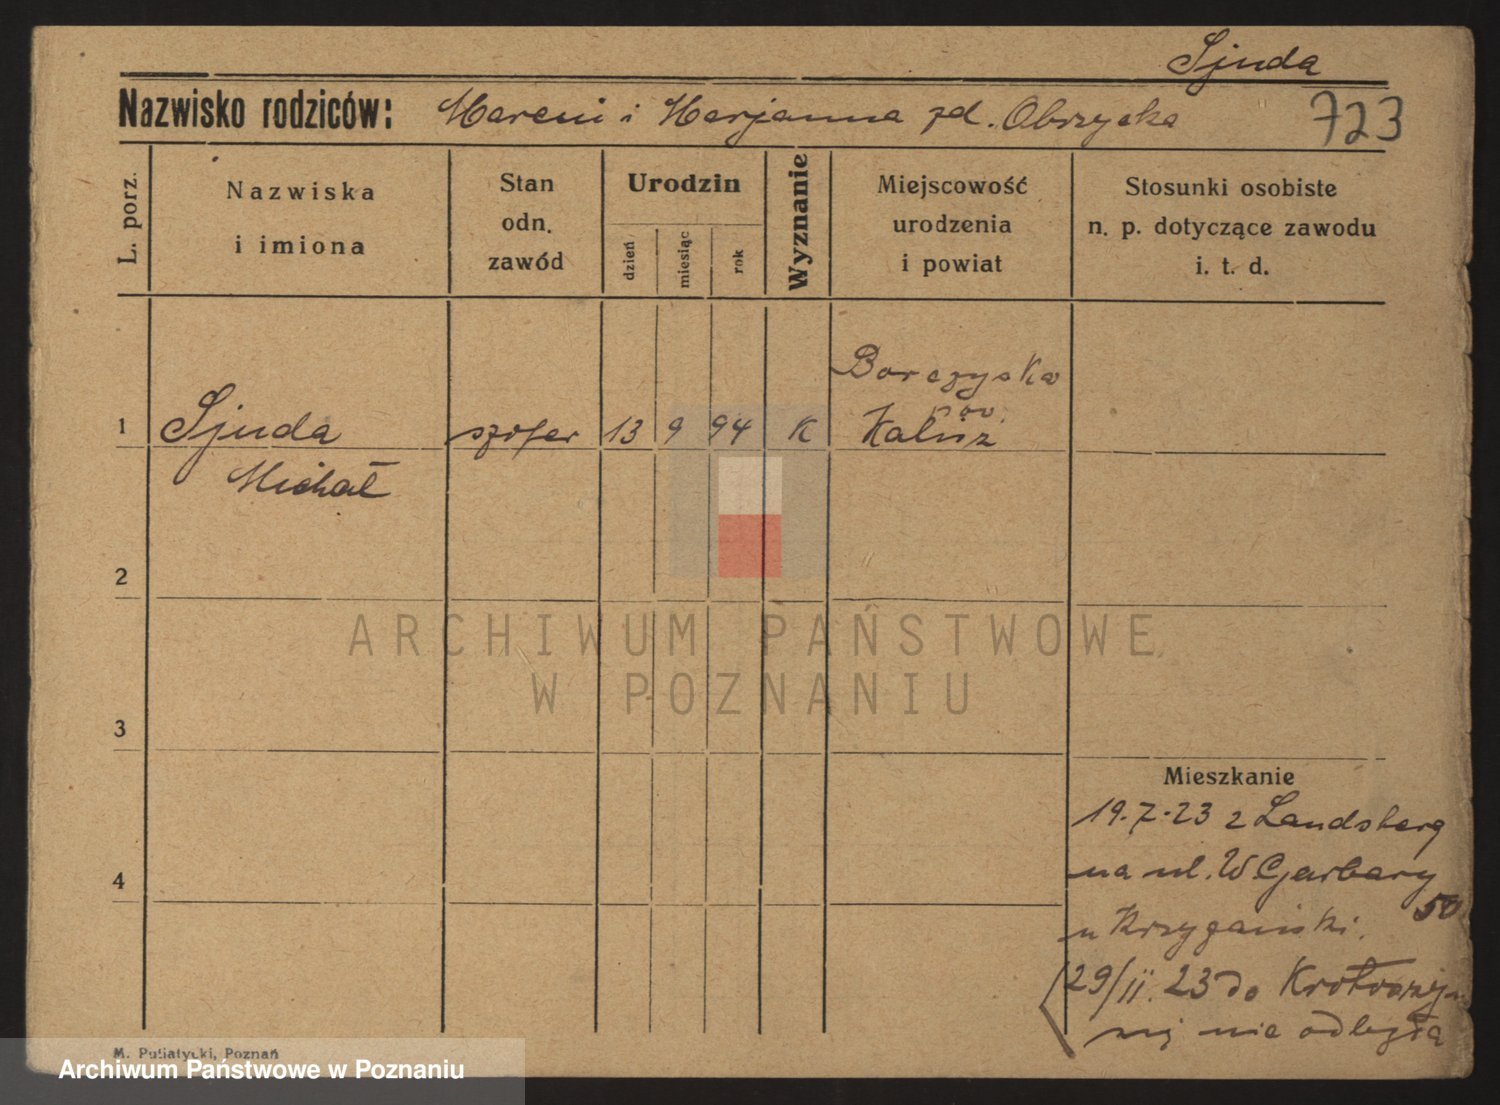 Sjuda
Nazwisko rodziców: Marcin i Marjanna zd. Obrzycka 723
L. porz.
Nazwiska
i imiona
Stan
odn.
zawód
Urodzin
dzień
miesiąc
rok
Wyznanie
Miejscowość
urodzenia
i powiat
Stosunki osobiste
n. p. dotyczące zawodu
i. t. d.
1 Sjuda szofer 13 9 94 K
Michał
Kalisz
2
ARCHIWUM PAŃSTWOWE
W POZNANIU
3
Mieszkanie
19.7.23 z Landsberg
4
na ul. W Garbary
50
u
29/11.23 do Krotoszyn
się nie odbyła
M. Putiatycki, Poznań
Archiwum Państwowe w Poznaniu